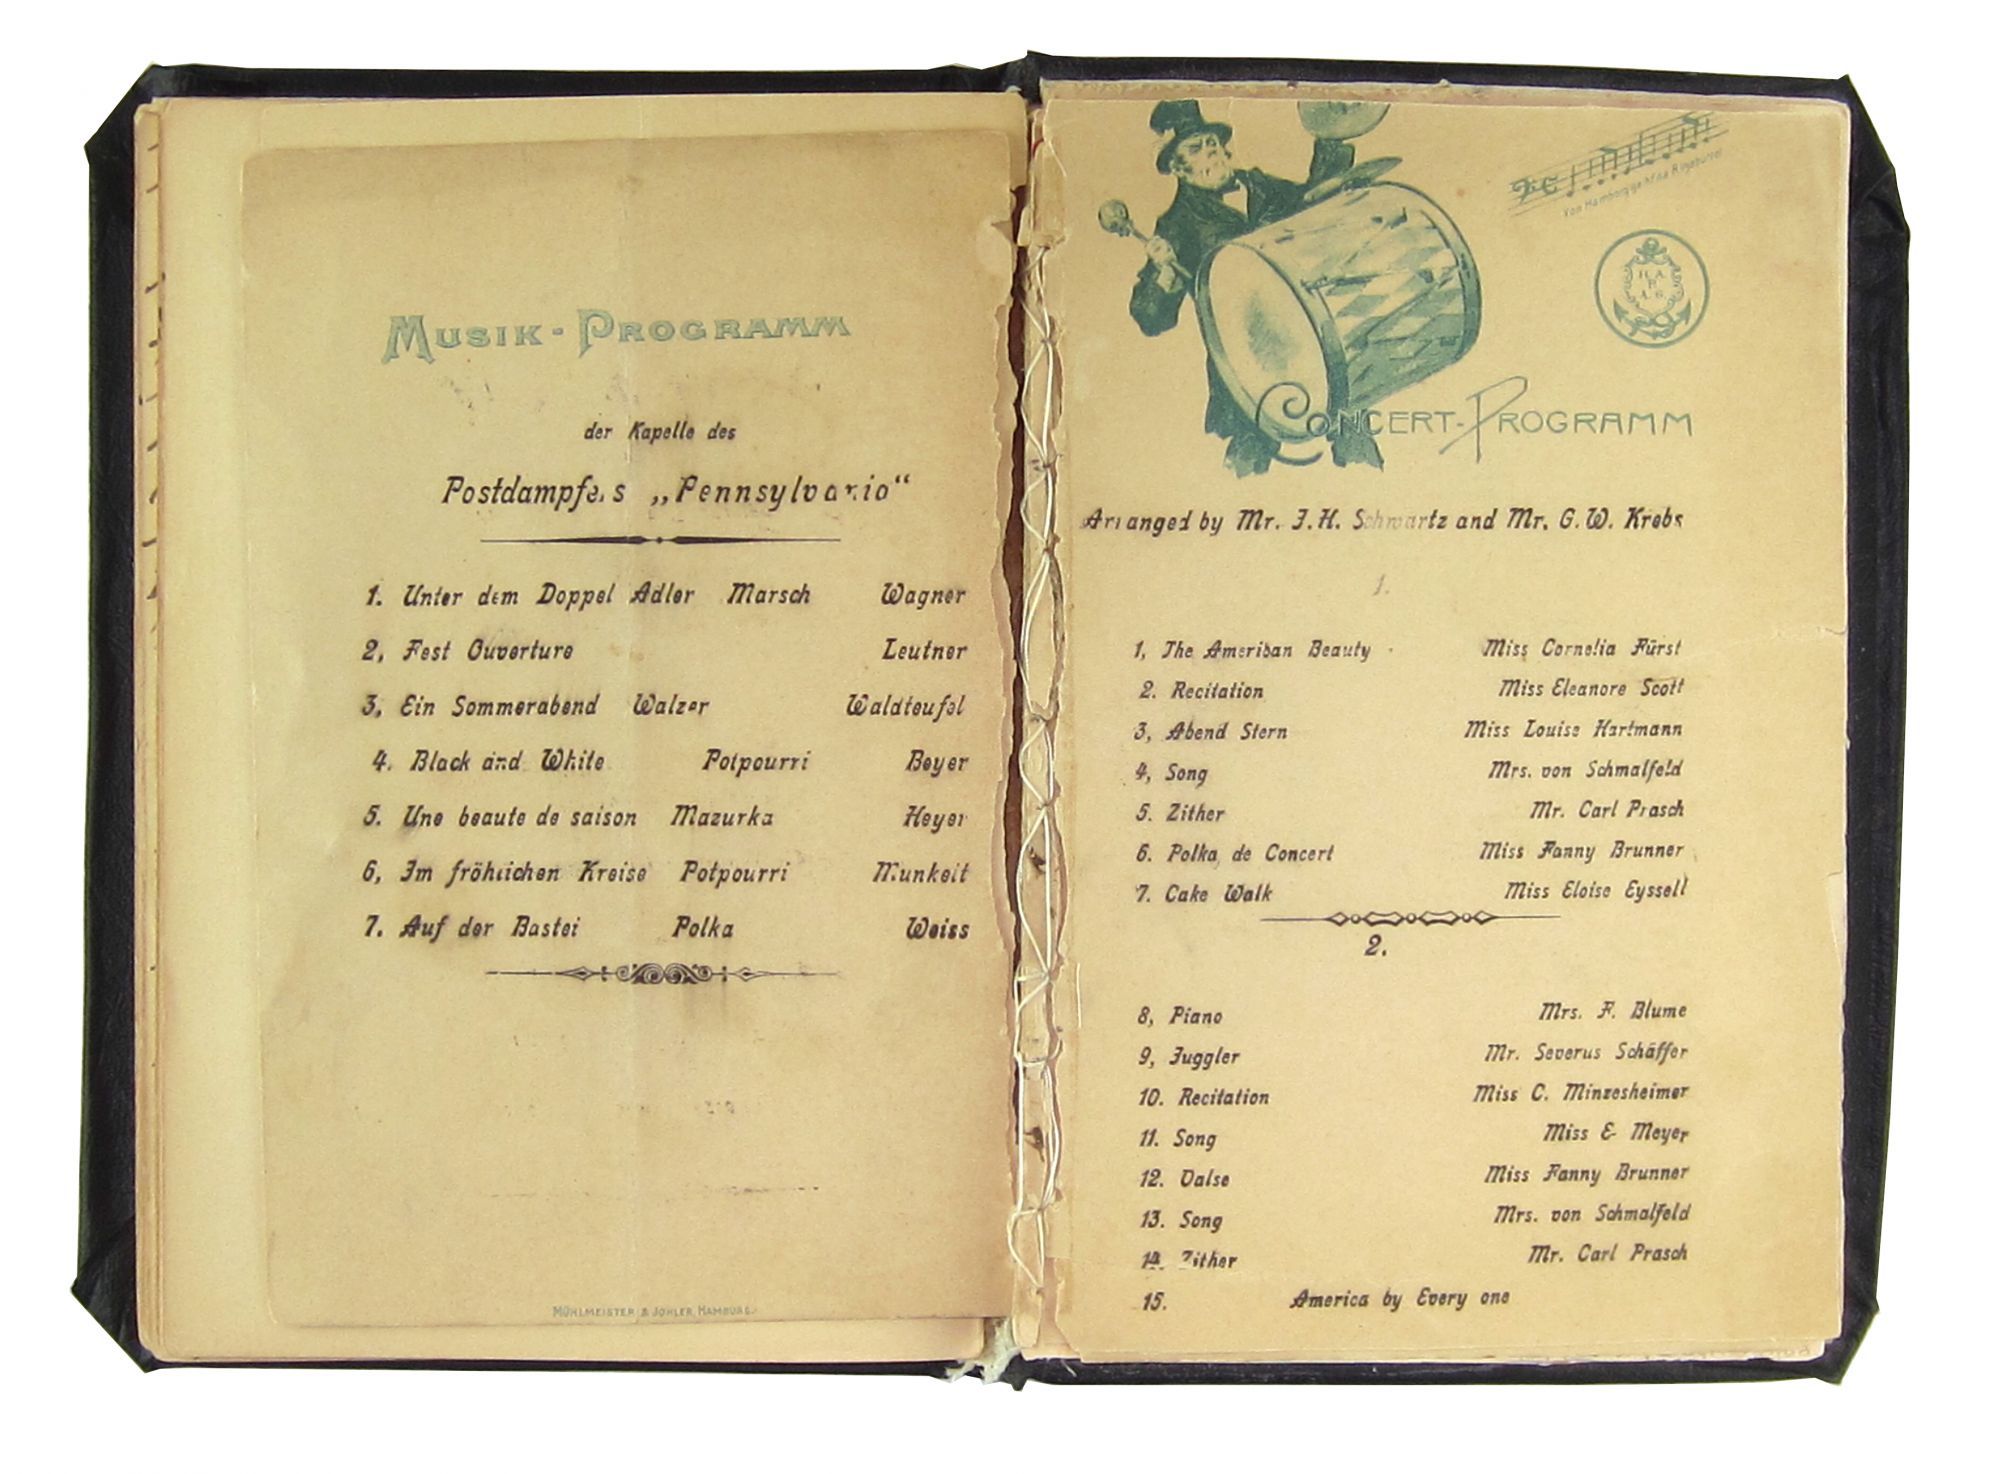 MUSIK-PROGRAMM
der Kapelle des
Postdampfers „Pennsylvania“
1. Unter dem Doppel Adler Marsch Wagner
2, Fest Ouverture Leutner
3, Ein Sommerabend Walzer Waldteufel
4. Black and White Potpourri Beyer
5. Une beaute de saison Mazurka Heyer
6, Im fröhlichen Kreise Potpourri Munkelt
7. Auf der Bastei Polka Weiss
MÜHLMEISTER & JOHLER, HAMBURG.
H. A.
P.
A. G.
CONCERT-PROGRAMM
Arranged by Mr. J. H. Schwartz and Mr. G. W. Krebs
1.
1, The Ameriban Beauty Miss Cornelia Fürst
2. Recitation Miss Eleanore Scott
3, Abend Stern Miss Louise Hartmann
4, Song Mrs. von Schmalfeld
5. Zither Mr. Carl Prasch
6. Polka de Concert Miss Fanny Brunner
7. Cake Walk Miss Eloise Eyssell
2.
8, Piano Mrs. F. Blume
9, Juggler Mr. Severus Schäffer
10. Recitation Miss C. Minzesheimer
11. Song Miss E Meyer
12. Valse Miss Fanny Brunner
13. Song Mrs. von Schmalfeld
14. Zither Mr. Carl Prasch
15. America by Every one